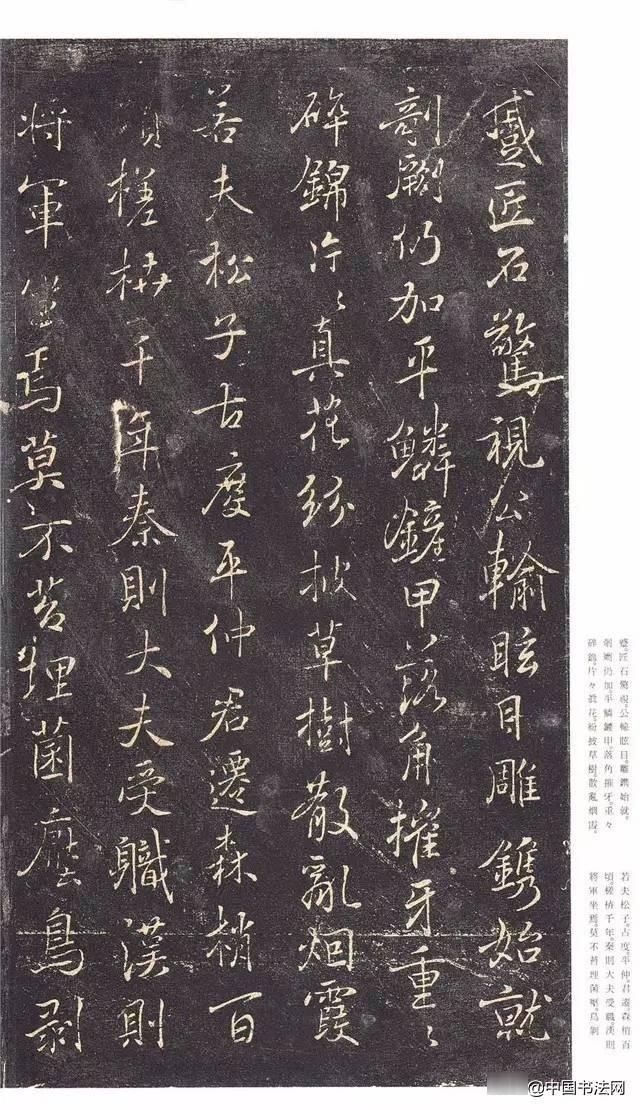 蹙匠石驚視公輸眩目雕鐫始就
剞劂仍加平鱗鏟甲落角摧牙重々
碎錦片々真花紛披草樹散亂烟霞
若夫松子古度平仲君遷森梢百
頃槎枿千年秦則大夫受軄漢則
将軍坐焉莫不苔埋菌壓鳥剥
蹙。匠石驚視。公輸眩目。雕鐫始就。
剞劂仍加。平鱗鏟甲。落角摧牙。重々
碎錦。片々眞花。紛披草樹。散亂烟霞。
若夫松子。古度。平仲。君遷。森梢百
頃。槎枿千年。秦則大夫受職。漢則
將軍坐焉。莫不苔埋菌壓。鳥剝
@中国书法网